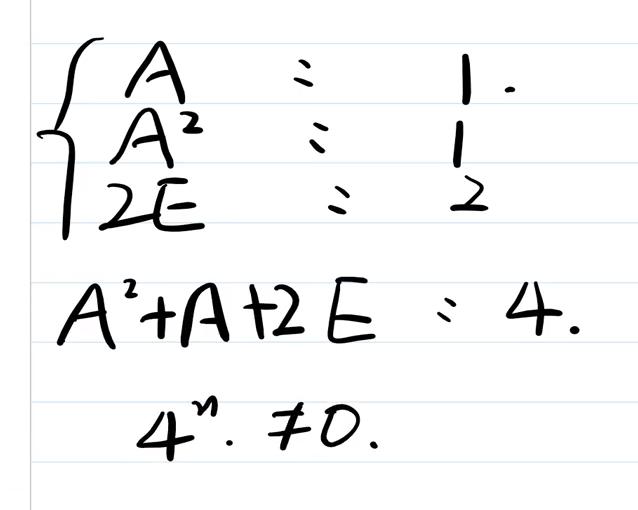 A : 1.
A² : 1
2E : 2
A²+A+2E : 4.
4ⁿ. ≠0.